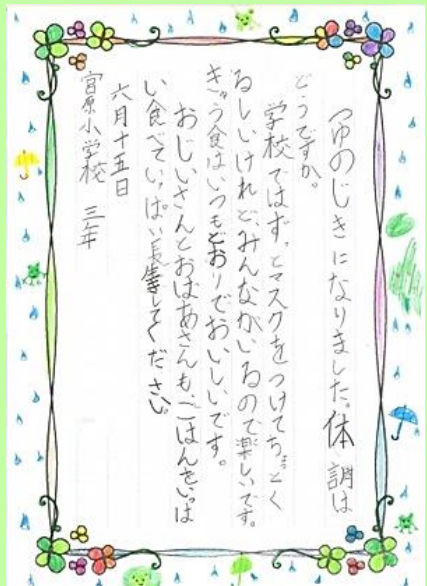 つゆのじきになりました。体調は
どうですか。
学校ではずっとマスクをつけてちょっとく
るしいけれど、みんながいるので楽しいです。
きゅう食はいつもどおりでおいしいです。
おじいさんとおばあさんも、ごはんをいっぱ
い食べていっぱい長生きしてください。
六月十五日
宮原小学校 三年